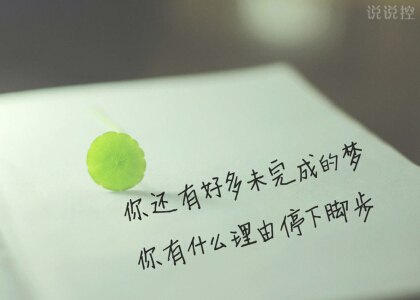 说说控
你还有好多未完成的梦
你有什么理由停下脚步